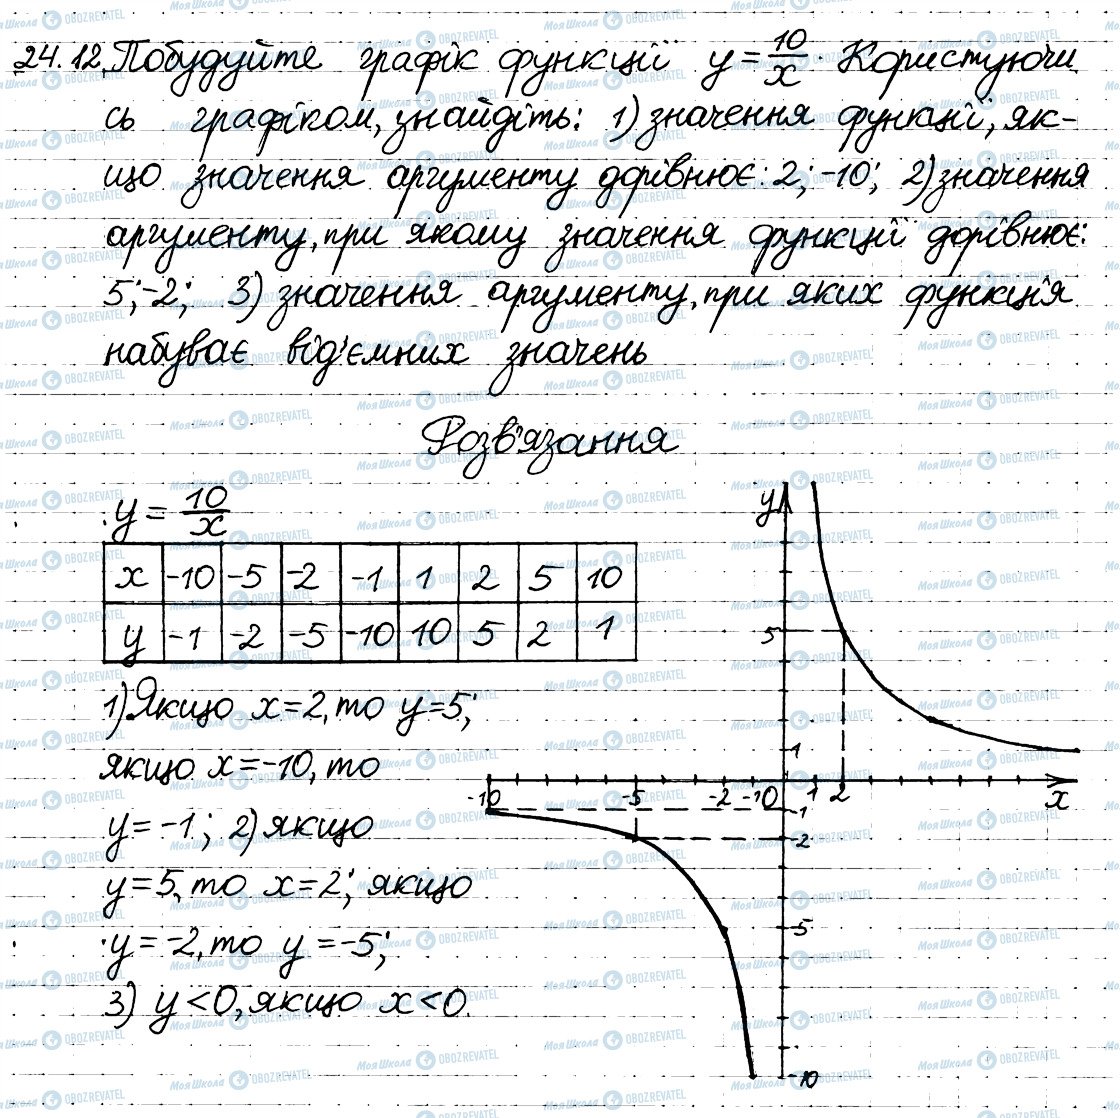 24.12. Побудуйте графік функції y = 10/x. Користуючи
сь графіком, знайдіть: 1) значення функції, як-
що значення аргументу дорівнює: 2; -10; 2) значення
аргументу, при якому значення функції дорівнює:
5; -2; 3) значення аргументу, при яких функція
набуває від'ємних значень
Розв'язання
y = 10/x
x -10 -5 -2 -1 1 2 5 10
y -1 -2 -5 -10 10 5 2 1
1) Якщо x=2, то y=5;
якщо x=-10, то
y=-1; 2) якщо
y=5, то x=2; якщо
y=-2, то y=-5;
3) y<0, якщо x<0.
y
5
1
-10 -5 -2 -1 0 1 2 x
-1
-2
-5
-10
Моя Школа OBOZREVATEL